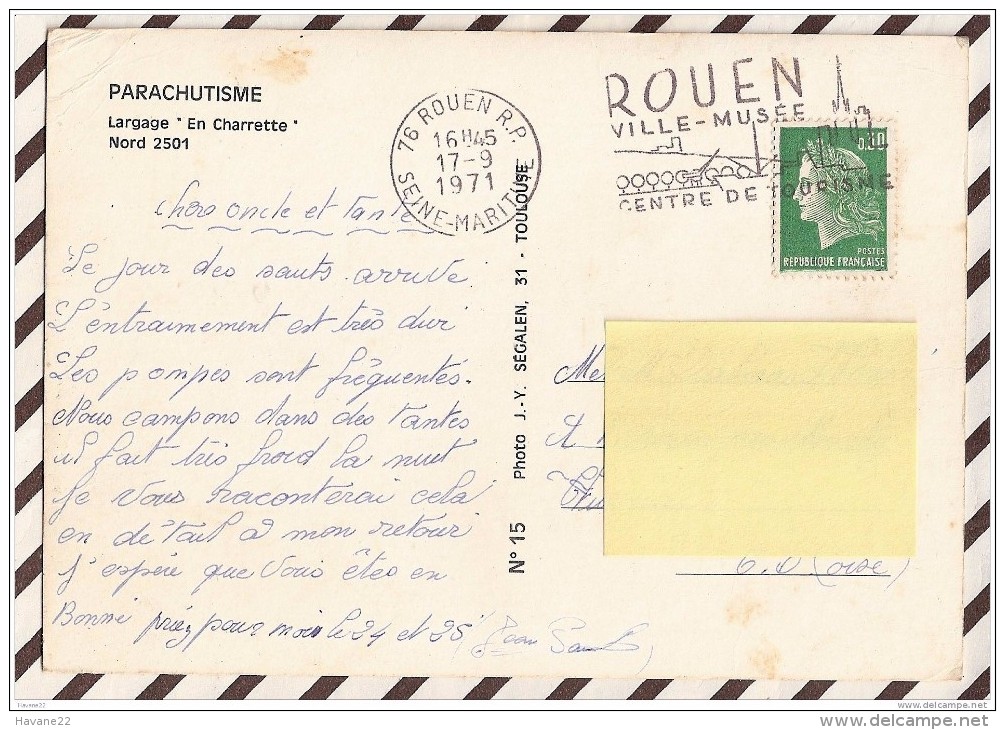 PARACHUTISME
Largage "En Charrette"
Nord 2501
76 ROUEN R.P.
16H45
17-9
1971
SEINE-MARITIME
ROUEN
VILLE-MUSÉE
CENTRE DE TOURISME
0,30
POSTES
RÉPUBLIQUE FRANÇAISE
Chers oncle et tante
Le jour des sauts arrive
L'entrainement est très dur
Les pompes sont fréquentes.
Nous campons dans des tantes
il fait très froid la nuit
Je vous raconterai cela
en détail à mon retour
J'espère que vous êtes en
Bonne priez pour moi le 24 et 25
Jean Paul
N° 15 Photo J.-Y. SÉGALEN, 31 - TOULOUSE
(oise)
Havane22
Havane22
www.delcampe.net
www.delcampe.net